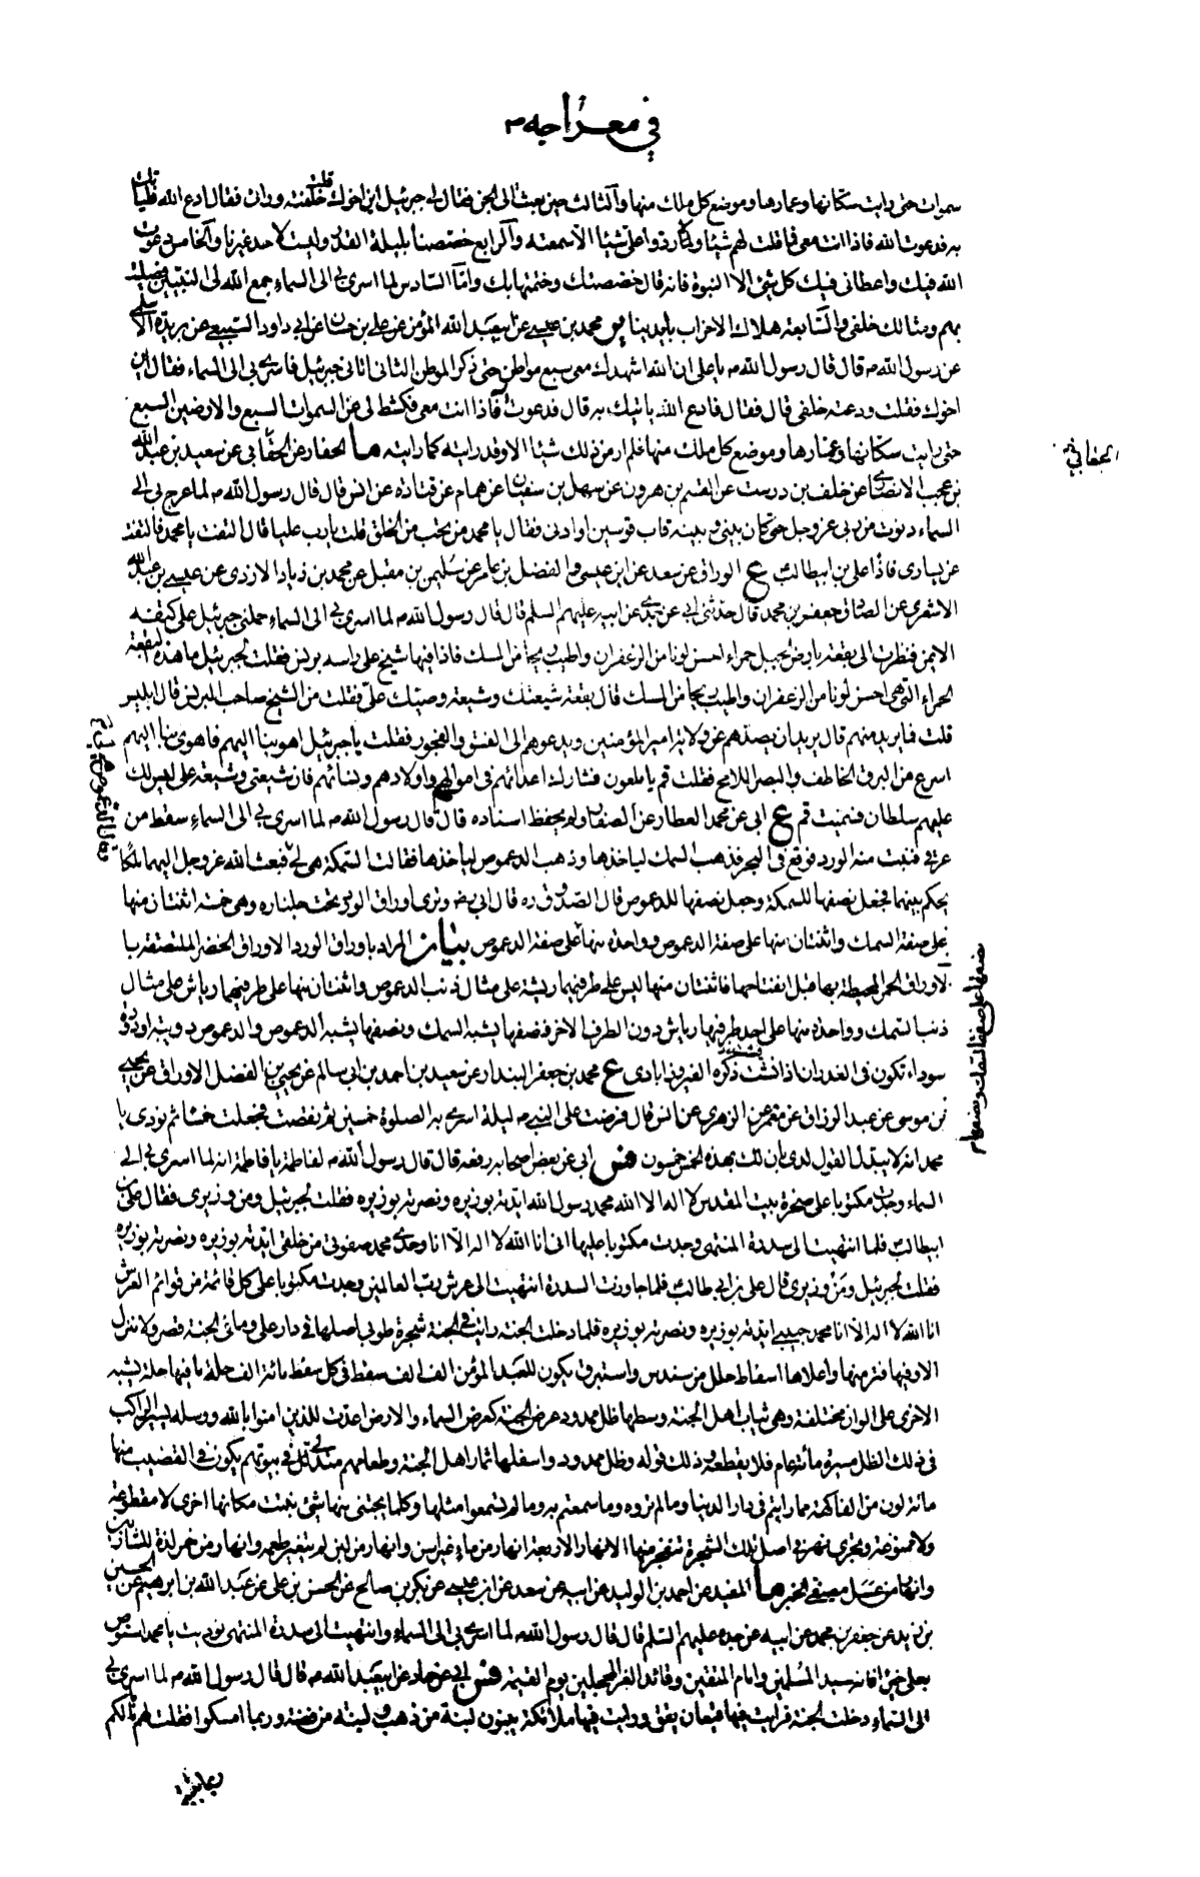 في معراجه ص
سموات حتى رايت سكانها وعمارها وموضع كل ملك منها والثالث حين بعثت الى الجن فقال لي جبرئيل اين اخوك قلت خلفته ورائي فقال ادع الله فلياتك
به فدعوت الله فاذا انت معي فما قلت لهم شيئا ولا ردوا علي شيئا الا سمعته والرابع خصصنا بليلة القدر وليست لاحد غيرنا والخامس دعوت
الله فيك واعطاني فيك كل شئ الا النبوة فانه قال خصصتك وختمتها بك واما السادس لما اسري بي الى السماء جمع الله لي النبيين فصليت
بهم ومثالك خلفي والسابعة هلاك الاحزاب بايدينا ير محمد بن عيسى عن ابي عبد الله المؤمن عن علي بن حسان عن ابي داود السبيعي عن بريدة الاسلمي
عن رسول الله ص قال قال رسول الله ص يا علي ان الله اشهدك معي سبع مواطن حتى ذكر الموطن الثاني اتاني جبرئيل فاسرى بي الى السماء فقال اين
اخوك فقلت ودعته خلفي قال فقال فادع الله ياتيك به قال فدعوت فاذا انت معي فكشط لي عن السموات السبع والارضين السبع
حتى رايت سكانها وعمارها وموضع كل ملك منها فلم ار من ذلك شيئا الا وقد رايته كما رايته ما الحفار عن الجعابي عن سعيد بن عبد الله
بن عجب الانصاري عن خلف بن درست عن القسم بن هرون عن سهل بن سفيان عن همام عن قتادة عن انس قال قال رسول الله ص لما عرج بي الى
السماء دنوت من ربي عز وجل حتى كان بيني وبينه قاب قوسين او ادنى فقال يا محمد من تحب من الخلق قلت يا رب عليا قال التفت يا محمد فالتفت
عن يساري فاذا علي بن ابيطالب ع الوراق عن سعد عن ابن عيسى والفضل بن عامر عن سليمن بن مقبل عن محمد بن زياد الازدي عن عيسى بن عبد الله
الاشعري عن الصادق جعفر بن محمد قال حدثني ابي عن جدي عن ابيه عليهم السلم قال قال رسول الله ص لما اسري بي الى السماء حملني جبرئيل على كتفه
الايمن فنظرت الى بقعة بارض الجبل حمراء احسن لونا من الزعفران واطيب ريحا من المسك فاذا فيها شيخ على راسه برنس فقلت لجبرئيل ما هذه البقعة
الحمراء التي هي احسن لونا من الزعفران واطيب ريحا من المسك قال بقعة شيعتك وشيعة وصيك علي فقلت من الشيخ صاحب البرنس قال ابليس
قلت فما يريد منهم قال يريد ان يصدهم عن ولاية امير المؤمنين ويدعوهم الى الفسق والفجور فقلت يا جبرئيل اهو بنا اليهم فاهوى بنا اليهم
اسرع من البرق الخاطف والبصر اللامح فقلت قم يا ملعون فشارك اعدائهم في اموالهم واولادهم ونسائهم فان شيعتي وشيعة علي ليس لك
عليهم سلطان فسميت قم ع ابي عن محمد العطار عن الصفار ولم يحفظ اسناده قال قال رسول الله ص لما اسري بي الى السماء سقط من
عرقي فنبت منه الورد فوقع في البحر فذهب السمك لياخذها وذهب الدعموص لياخذها فقالت السمكة هي لي فبعث الله عز وجل اليهما ملكا
يحكم بينهما فجعل نصفها للسمكة وجعل نصفها للدعموص قال الصدوق ره قال ابي رض وترى اوراق الورد تحت جلناره وهي خمسة اثنتان منها
على صفة السمك واثنتان منها على صفة الدعموص وواحدة منها على صفة الدعموص بيان المراد باوراق الورد الاوراق الخضر الملتصقة با
لاوراق الحمر المحيطة بها قبل انفتاحها فاثنتان منها ليس على طرفيهما ريشة على مثال ذنب الدعموص واثنتان منها على طرفيهما رياش على مثال
ذنب السمك وواحدة منها على احد طرفيها رياش دون الطرف الاخر فنصفها يشبه السمك ونصفها يشبه الدعموص والدعموص دويبة او دودة
سوداء تكون في الغدران اذا نشت ذكره الفيروزابادي ع محمد بن جعفر البندار عن سعيد بن احمد بن ابي سالم عن يحيى بن الفضل الوراق عن يحيى
بن موسى عن عبد الرزاق عن معمر عن الزهري عن انس قال فرضت على النبي ص ليلة اسري به الصلوة خمسين ثم نقصت فجعلت خمسا ثم نودي يا
محمد انه لا يبدل القول لدي ان لك بهذه الخمس خمسون فس ابي عن بعض اصحابه رفعه قال قال رسول الله ص لفاطمة يا فاطمة انه لما اسري بي الى
السماء وجدت مكتوبا على صخرة بيت المقدس لا اله الا الله محمد رسول الله ايدته بوزيره ونصرته بوزيره فقلت لجبرئيل ومن وزيري فقال علي بن
ابيطالب فلما انتهيت الى سدرة المنتهى وجدت مكتوبا عليها اني انا الله لا اله الا انا وحدي محمد صفوتي من خلقي ايدته بوزيره ونصرته بوزيره
فقلت لجبرئيل ومن وزيري قال علي بن ابي طالب فلما جاوزت السدرة انتهيت الى عرش رب العالمين وجدت مكتوبا على كل قائمة من قوائم العرش
انا الله لا اله الا انا محمد حبيبي ايدته بوزيره ونصرته بوزيره فلما دخلت الجنة رايت في الجنة شجرة طوبى اصلها في دار علي وما في الجنة قصر ولا منزل
الا وفيها فنن منها واعلاها اسفاط حلل من سندس واستبرق يكون للعبد المؤمن الف الف سفط في كل سفط مائة الف حلة ما فيها حلة يشبه
الاخرى على الوان مختلفة وهي ثياب اهل الجنة وسطها ظل ممدود عرض الجنة كعرض السماء والارض اعدت للذين امنوا بالله ورسله يسير الراكب
في ذلك الظل مسيرة مائة عام فلا يقطعه وذلك قوله وظل ممدود واسفلها ثمار اهل الجنة وطعامهم متدلي في بيوتهم يكون في القضيب منها
مائة لون من الفاكهة مما رايتم في دار الدنيا وما لم تروه وما سمعتم به وما لم تسمعوا مثلها وكلما يجتنى منها شئ نبتت مكانها اخرى لا مقطوعة
ولا ممنوعة ويجري نهر في اصل تلك الشجرة تنفجر منها الانهار الاربعة انهار من ماء غير اسن وانهار من لبن لم يتغير طعمه وانهار من خمر لذة للشاربين
وانهار من عسل مصفى الخبر ما المفيد عن احمد بن الوليد عن ابيه عن سعد عن ابن عيسى عن بكر بن صالح عن الحسن بن علي عن عبد الله بن ابرهيم عن الحسين
بن زيد عن جعفر بن محمد عن ابيه عن جده عليهم السلم قال قال رسول الله ص لما اسري بي الى السماء وانتهيت الى سدرة المنتهى نوديت يا محمد استوص
بعلي خيرا فانه سيد المسلمين وامام المتقين وقائد الغر المحجلين يوم القيمة فس ابي عن حماد عن ابي عبد الله ص قال قال رسول الله ص لما اسري بي
الى السماء دخلت الجنة فرايت فيها قيعان يقق ورايت فيها ملائكة يبنون لبنة من ذهب ولبنة من فضة وربما امسكوا فقلت لهم ما لكم
الجعابي